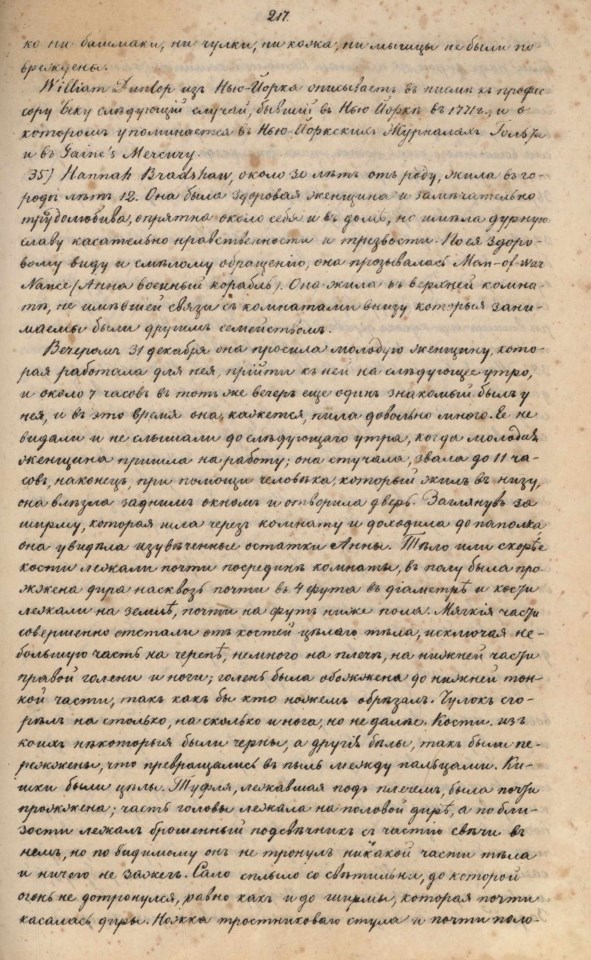 217.
ко ни башмаки, ни чулки, ни кожа, ни мышцы не были по-
врежденье.
William Dunlop изъ Нью-Йорка описываетъ въ письмѣ къ профес
сору Беку слѣдующій случай, бывшій въ Нью Йоркѣ въ 1771 г., и о
которомъ упоминается въ Нью-Йоркскихъ Журналахъ Гольта
и въ Gaine's Mercury.
35) Hannah Bradshaw, около 30 лѣтъ отъ роду, жила въ го-
родѣ лѣтъ 12. Она была здоровая женщина и замѣчательно
трудолюбива, опрятна около себя и въ домѣ, но имѣла дурную
славу касательно нравственности и трезвости. По ея здоро-
вому виду и смѣлому обращенію, она прозывалась Man-of-War
Nance (Анна военный корабль). Она жила въ верхней комна-
тѣ, не имѣвшей связи съ комнатами внизу которыя зани-
маемы были другимъ семействомъ.
Вечеромъ 31 декабря она просила молодую женщину, кото-
рая работала для нея, прійти къ ней на слѣдующее утро,
и около 7 часовъ въ тотъ же вечеръ еще одинъ знакомый былъ у
нея, и въ это время она, кажется, пила довольно много. Ее не
видали и не слышали до слѣдующаго утра, когда молодая
женщина пришла на работу; она стучала, звала до 11 ча-
совъ, наконецъ, при помощи человѣка, который жилъ въ низу,
она влѣзла заднимъ окномъ и отворила дверь. Заглянувъ за
ширму, которая шла черезъ комнату и доходила до потолка
она увидѣла изувѣченные остатки Анны. Тѣло или скорѣе
кости лежали почти посрединѣ комнаты, въ полу была про-
жжена дира насквозь почти въ 4 фута въ діаметрѣ и кости
лежали на землѣ, почти на футъ ниже пола. Мягкія части
совершенно отстали отъ костей цѣлаго тѣла, исключая не-
большую часть на черепѣ, немного на плечѣ, на нижней части
правой голени и ноги; голень была обожжена до нижней тон-
кой части, такъ какъ бы кто ножемъ обрѣзалъ. Чулокъ сго-
рѣлъ на столько, на сколько и нога, но не далѣе. Кости, изъ
коихъ нѣкоторыя были черны, а другія бѣлы, такъ были пе-
режжены, что превращались въ пыль между пальцами. Ки-
шки были цѣлы. Туфля, лежавшая подъ плечемъ, была почти
прожжена; часть головы лежала на половой дирѣ, а по бли-
зости лежалъ брошенный подсвѣчникъ съ частію свѣчи въ
немъ, но по видимому онъ не тронулъ никакой части тѣла
и ничего не зажегъ. Сало сплыло со свѣтильни, до которой
огонь не дотронулся, равно какъ и до ширмы, которая почти
касалась диры. Ножка тростниковаго стула и почти поло-